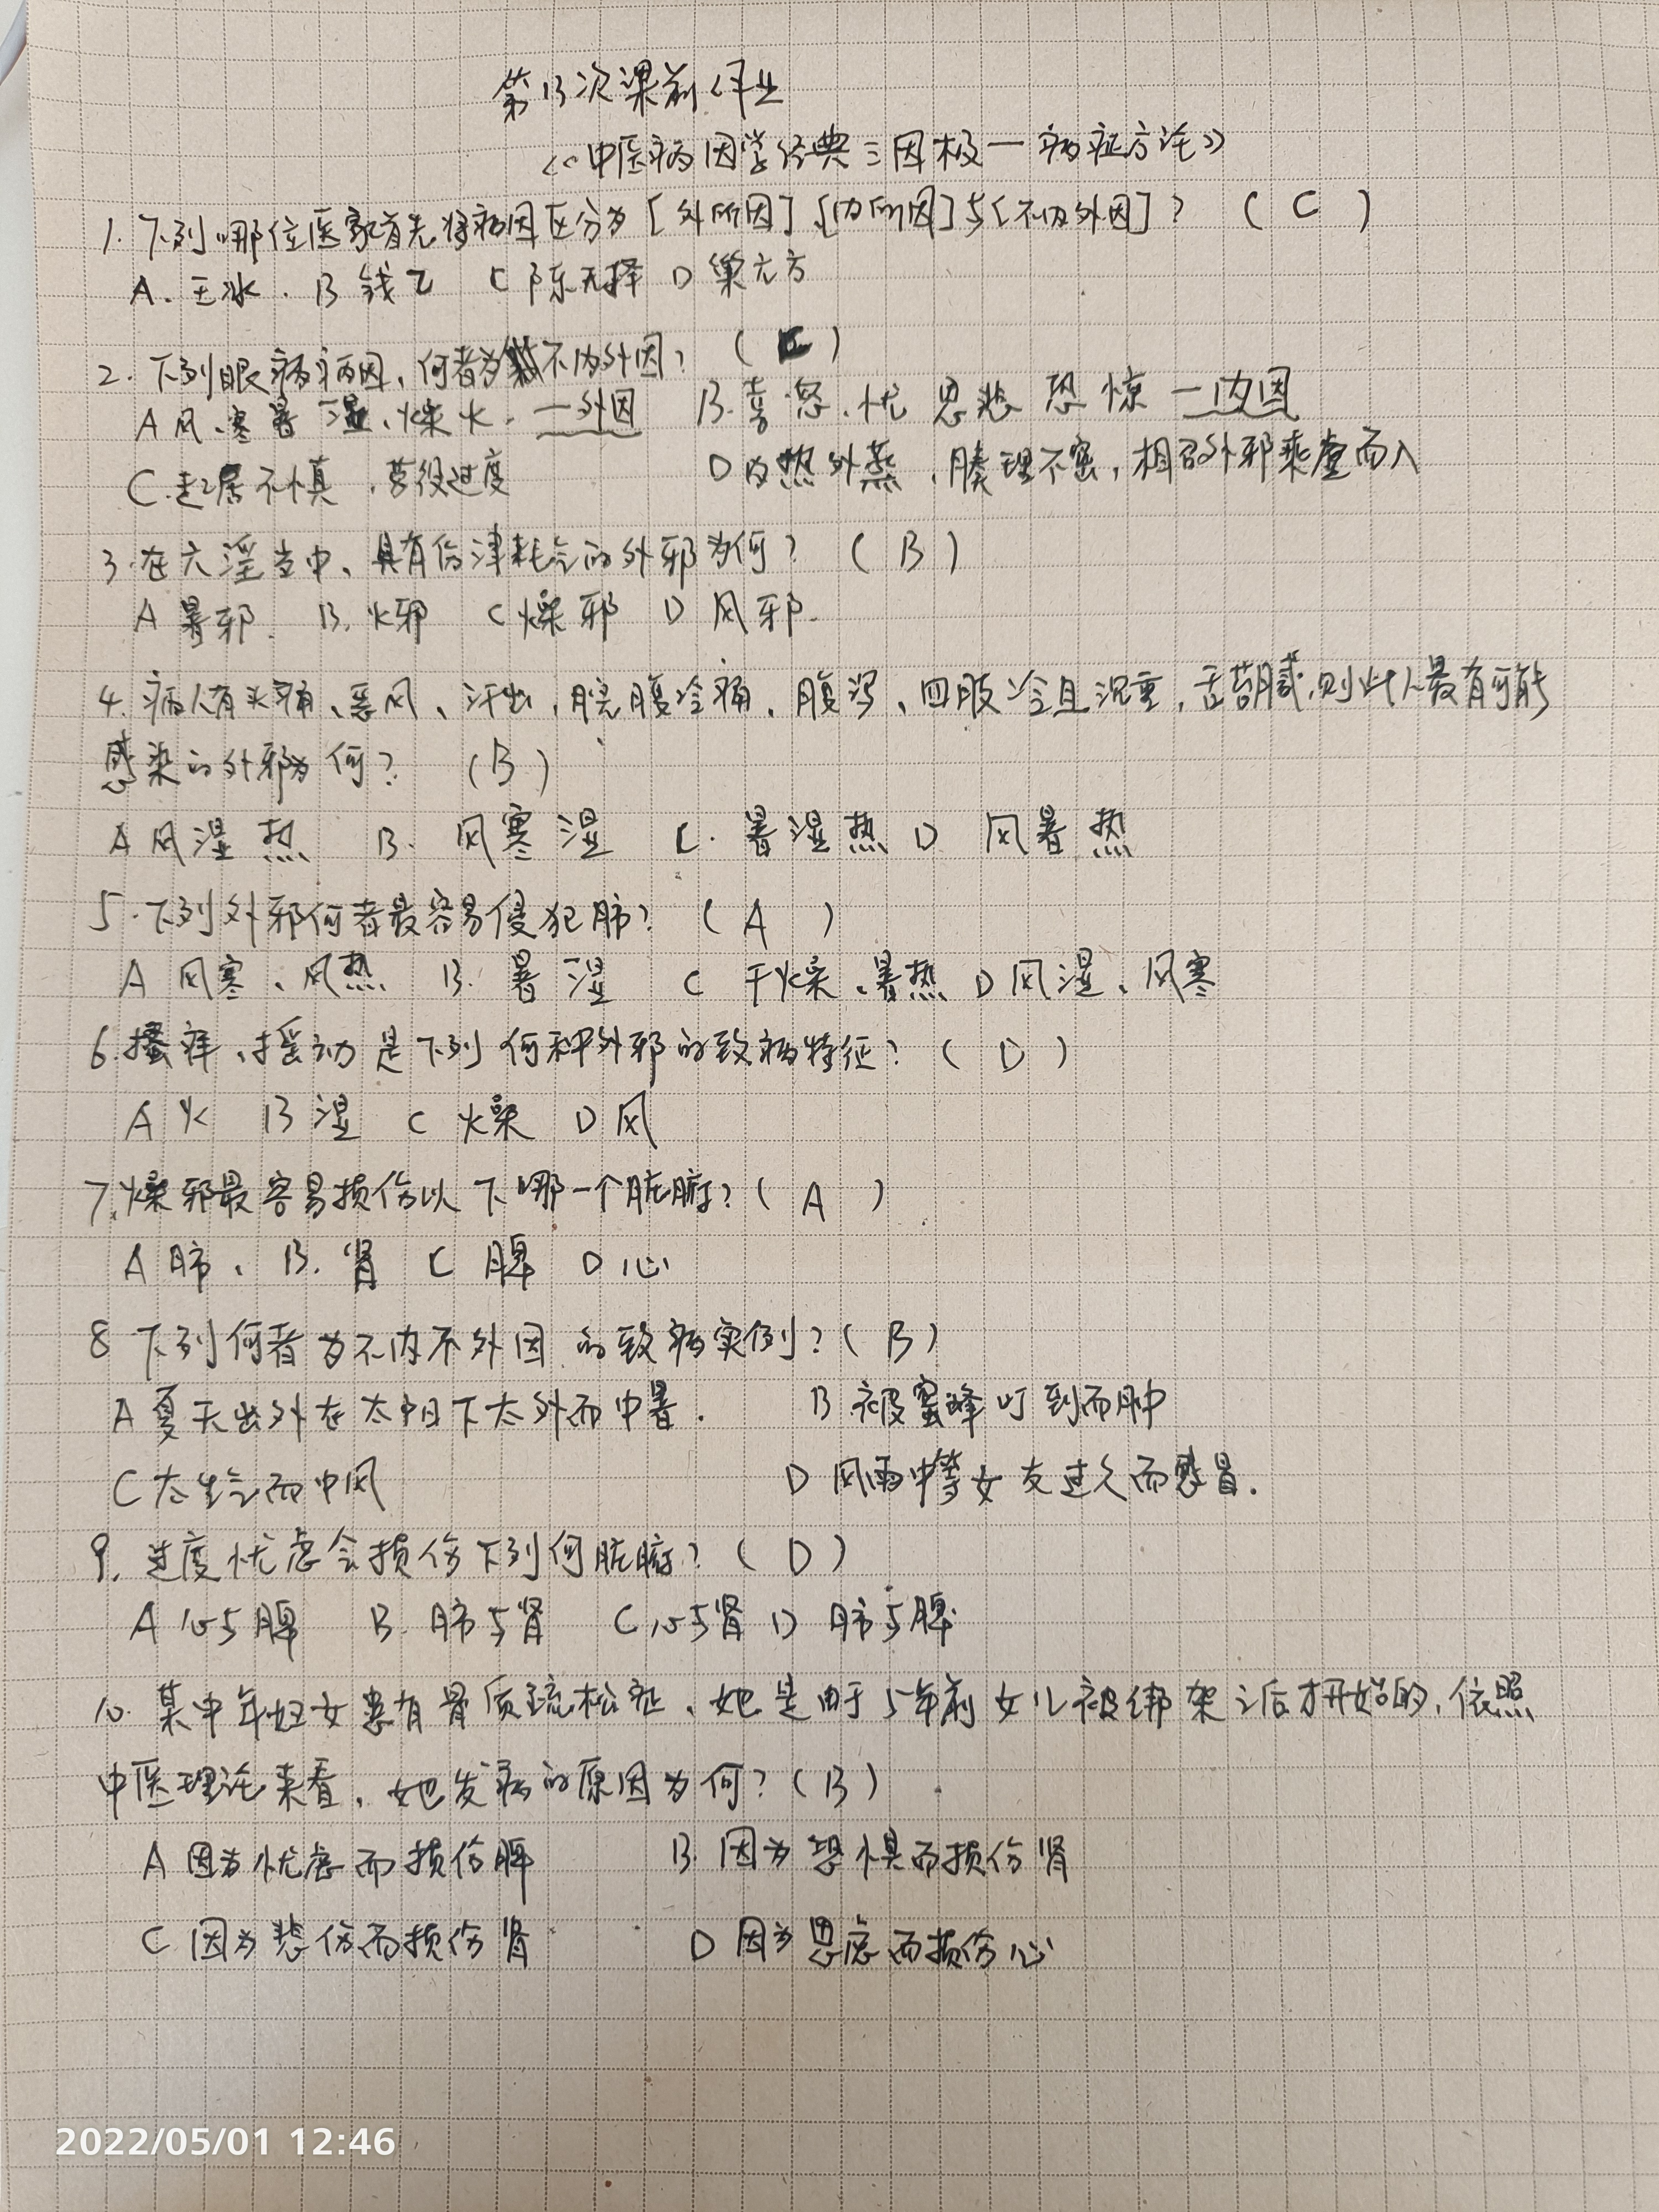 第13次课前作业
《中医病因学经典三因极一病症方论》
1. 下列哪位医家首先将病因区分为[外所因]、[内所因]与[不内外因]? ( C )
A. 王冰. B 钱乙 C 陈无择 D 巢元方
2. 下列眼病病因,何者为不内外因? ( C )
A 风、寒暑 湿、燥火. —外因 B. 喜怒、忧 思悲 恐 惊 —内因
C. 起居不慎 , 劳役过度 D 内热外蒸, 腠理不密, 相召外邪乘虚而入
3. 在六淫当中、具有伤津耗气的外邪为何? ( B )
A 暑邪. B. 火邪 C 燥邪 D 风邪.
4. 病人有头痛、恶风、汗出, 脘腹冷痛、腹泻、四肢冷且沉重, 舌苔腻,则此人最有可能
感染的外邪为何? (B)
A 风湿热 B. 风寒湿 C. 暑湿热 D 风暑热
5. 下列外邪何者最容易侵犯肺? ( A )
A 风寒、风热 B. 暑湿 C 干燥、暑热 D 风湿、风寒
6. 搔痒、摇动是下列何种外邪的致病特征? ( D )
A 火 B 湿 C 燥 D 风
7. 燥邪最容易损伤以下哪一个脏腑? ( A )
A 肺、 B. 肾 C 脾 D 心
8 下列何者为不内不外因的致病实例? ( B )
A 夏天出外在太阳下太外而中暑. B 被蜜蜂叮到而肿
C 太生气而中风 D 风雨中等女友过久而感冒.
9. 过度忧虑会损伤下列何脏腑? ( D )
A 心与脾 B. 肺与肾 C 心与肾 D 肺与脾
10. 某中年妇女患有骨质疏松症、她是由于5年前女儿被绑架之后才开始的, 依照
中医理论来看, 她发病的原因为何? ( B )
A 因为忧虑而损伤脾 B. 因为恐惧而损伤肾
C 因为悲伤而损伤肾 D 因为思虑而损伤心
2022/05/01 12:46